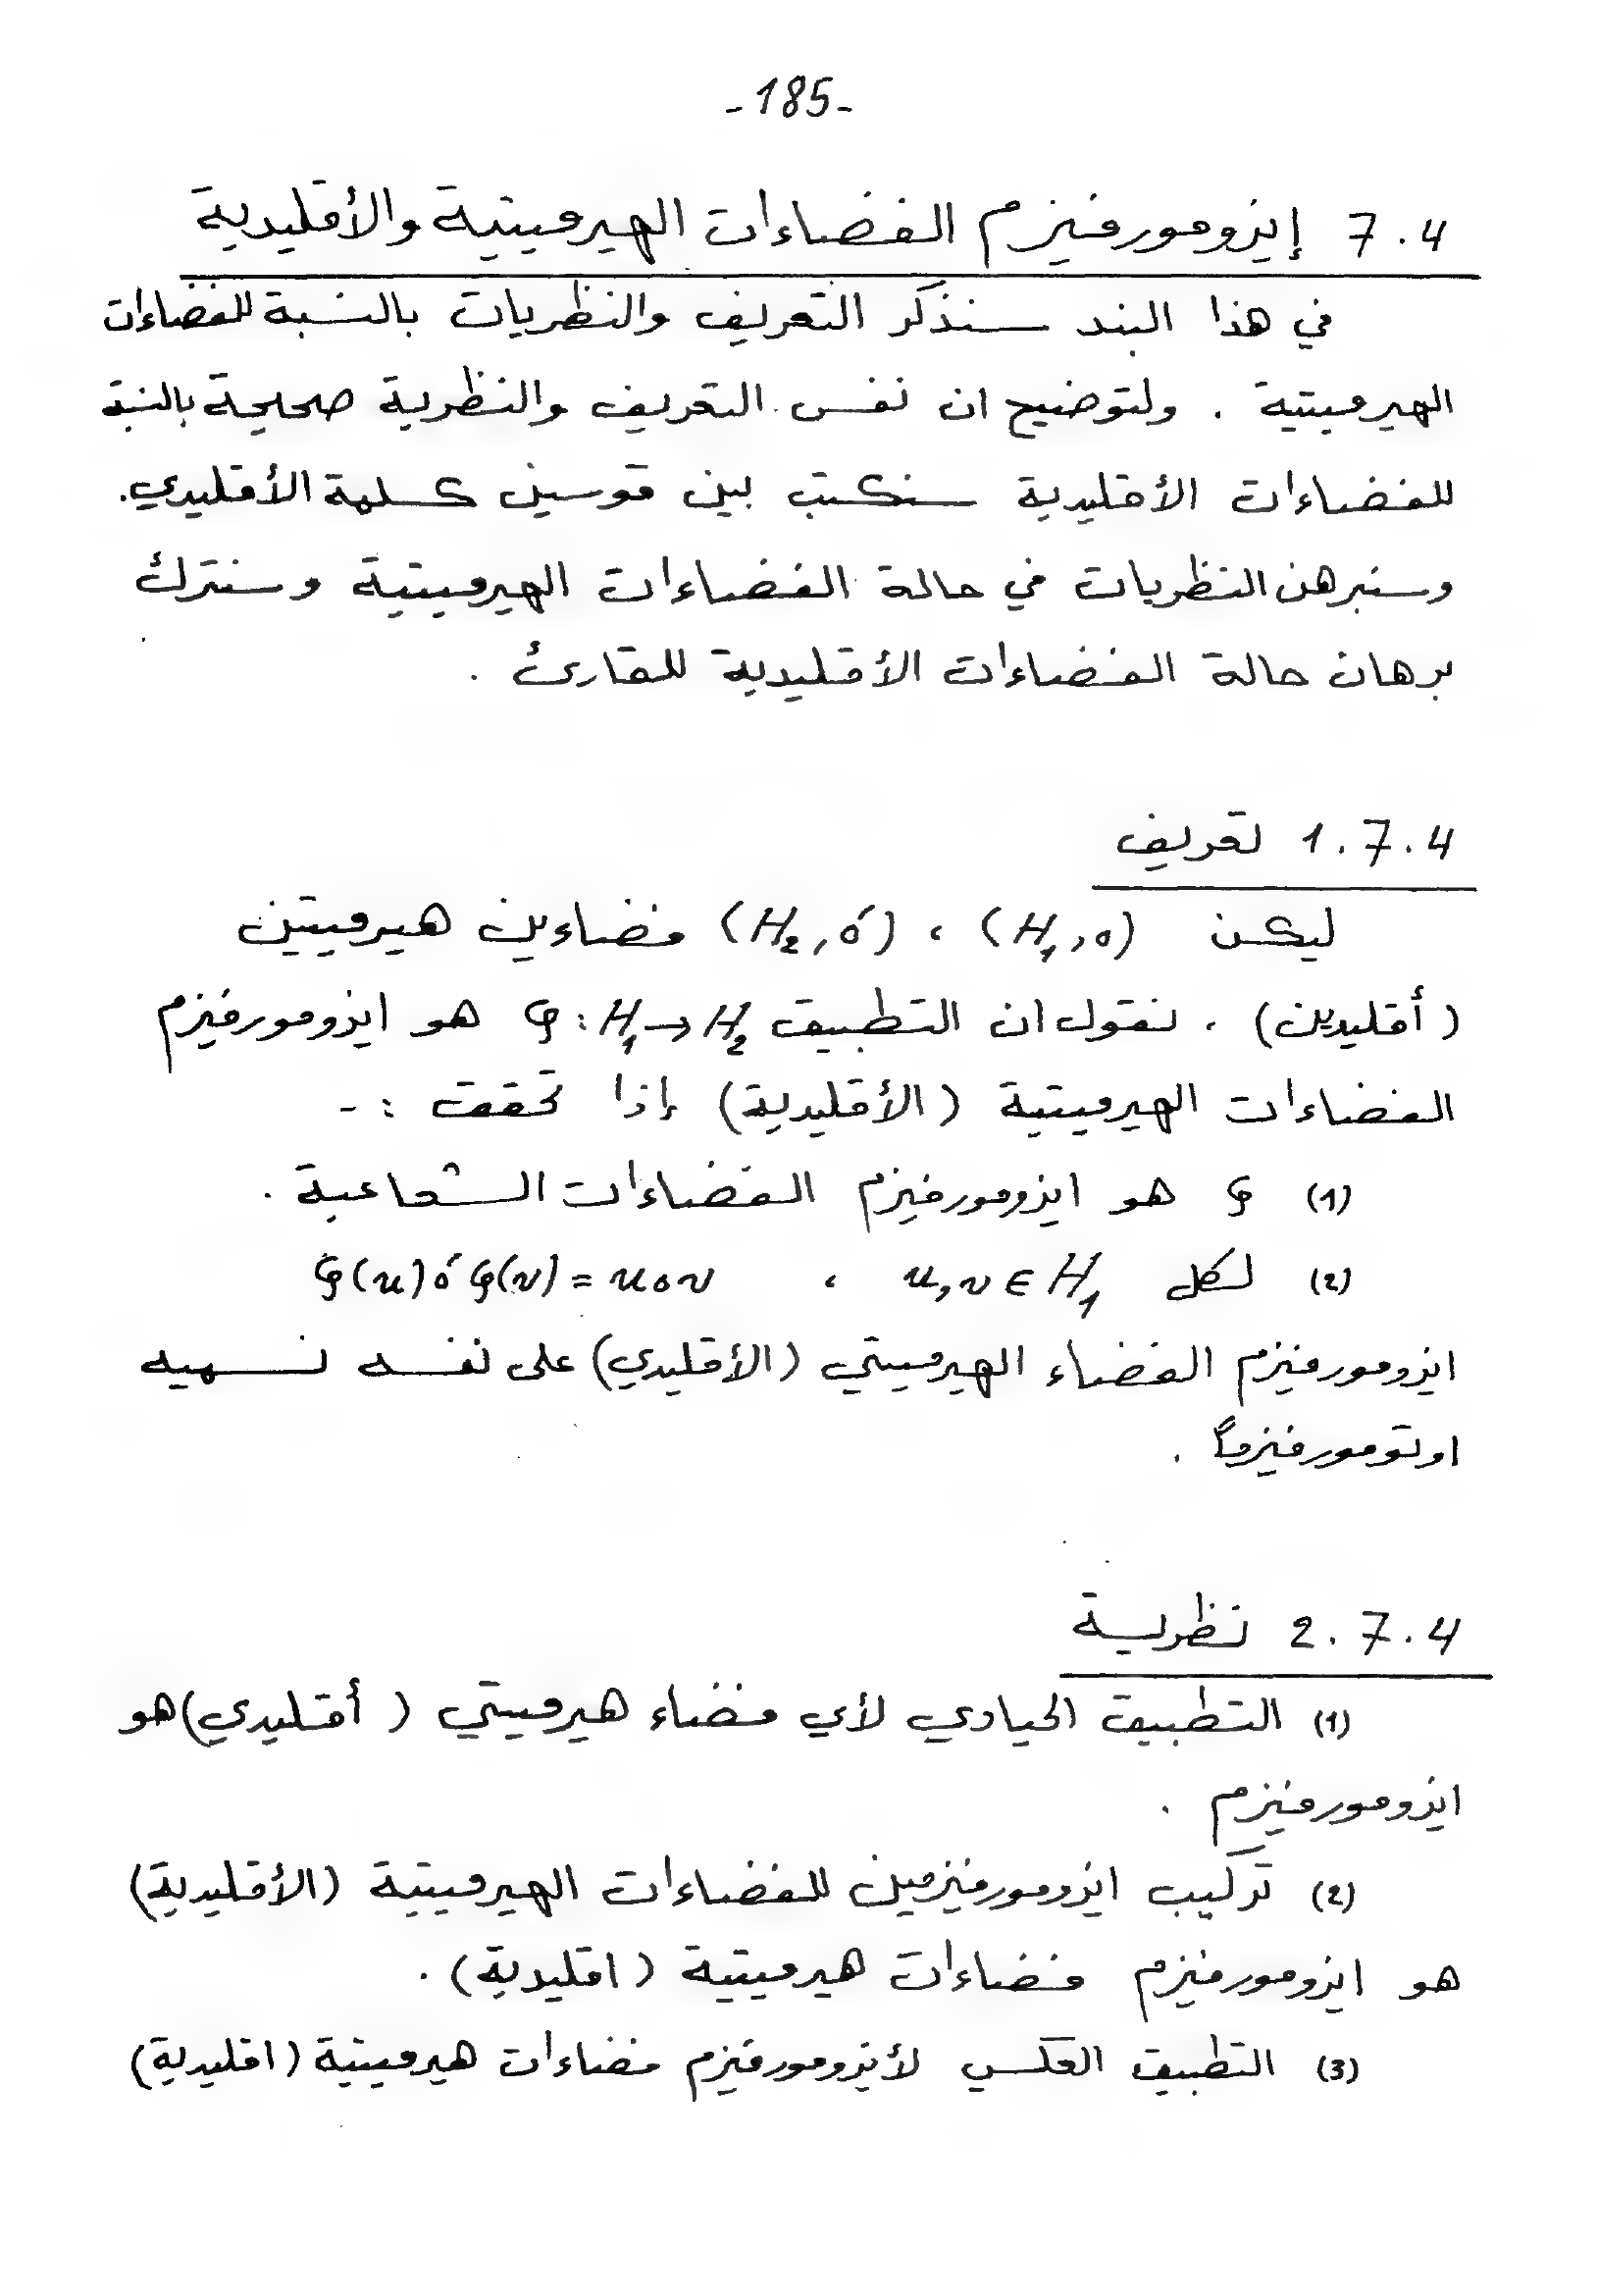 -185-
7.4 إيزومورفيزم الفضاءات الهيرميتية والأقليدية
في هذا البند سنذكر التعريف والنظريات بالنسبة للفضاءات
الهيرميتية . ولتوضيح ان نفس التعريف والنظرية صحيحة بالنسبة
للفضاءات الأقليدية سنكتب بين قوسين كلمة الأقليدي.
وسنبرهن النظريات في حالة الفضاءات الهيرميتية وسنترك
برهان حالة الفضاءات الأقليدية للقارئ .
1.7.4 تعريف
ليكن (H₁,o) ، (H₂,ó) فضاءين هيرميتين
(أقليدين) . نقول ان التطبيق φ: H₁→H₂ هو ايزومورفيزم
الفضاءات الهيرميتية (الأقليدية) إذا تحققت :-
(1) φ هو ايزومورفيزم الفضاءات الشعاعية .
(2) لكل u,v ∈ H₁ ، φ(u) ó φ(v) = u o v
ايزومورفيزم الفضاء الهيرميتي (الأقليدي) على نفسه نسميه
اوتومورفيزماً .
2.7.4 نظرية
(1) التطبيق الحيادي لأي فضاء هيرميتي (أقليدي) هو
ايزومورفيزم .
(2) تركيب ايزومورفيزمين للفضاءات الهيرميتية (الأقليدية)
هو ايزومورفيزم فضاءات هيرميتية (اقليدية) .
(3) التطبيق العكسي لأيزومورفيزم فضاءات هيرميتية (اقليدية)